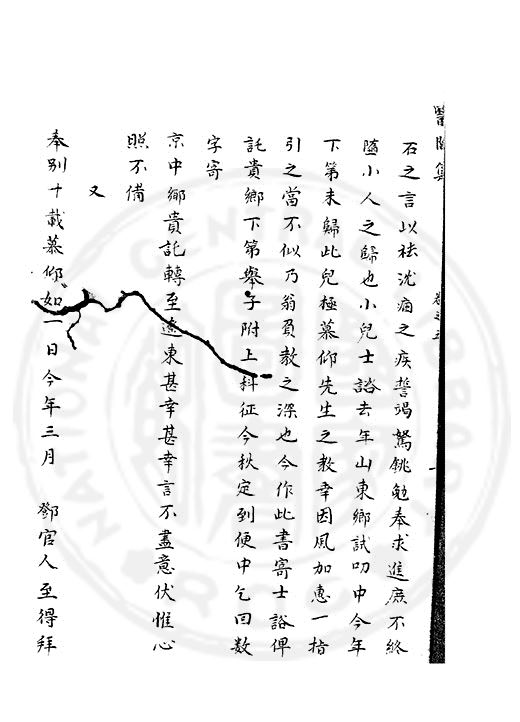 醫閭集
石之言以祛沈痼之疾誓竭駑銚勉奉求進庶不終
隨小人之歸也小兒士諮去年山東鄉試叨中今年
下第未歸此兒極慕仰先生之教幸因風加惠一指
引之當不似乃翁負教之深也今作此書寄士諮俾
託貴鄉下第舉子附上料征今秋定到便中乞回數
字寄
京中鄉貴託轉至遼東甚幸甚幸言不盡意伏惟心
照不備
又
奉別十載慕仰如一日今年三月 鄧官人至得拜